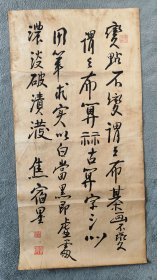 點不變謂之布棊画不
謂之布算祘古算字以
用筆求實以白當黑即虛處
濃淡破漬潑焦宿墨